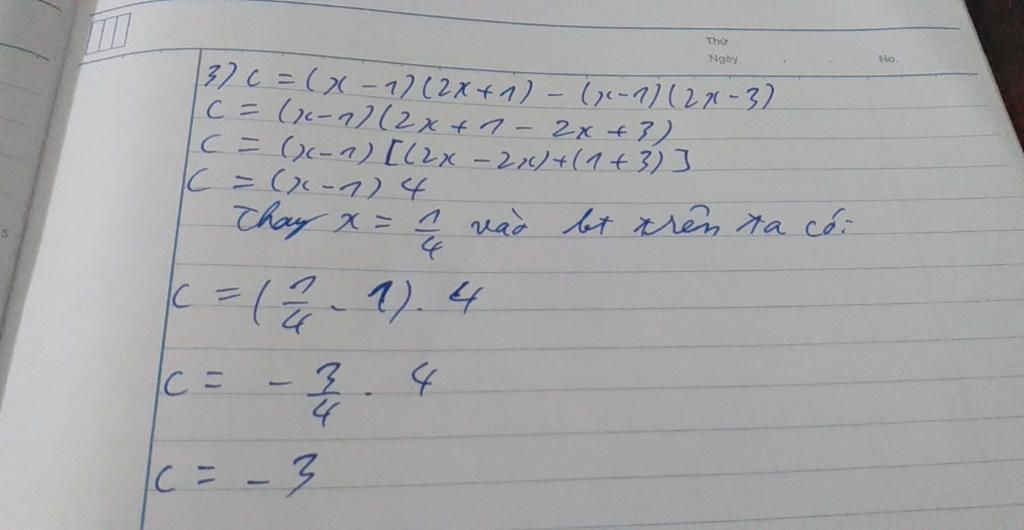 Thứ
Ngày No.
3) C = (x - 1)(2x + 1) - (x - 1)(2x - 3)
C = (x - 1)(2x + 1 - 2x + 3)
C = (x - 1) [(2x - 2x) + (1 + 3)]
C = (x - 1) 4
Thay x = 1/4 vào bt trên ta có:
C = (1/4 - 1) . 4
C = - 3/4 . 4
C = - 3